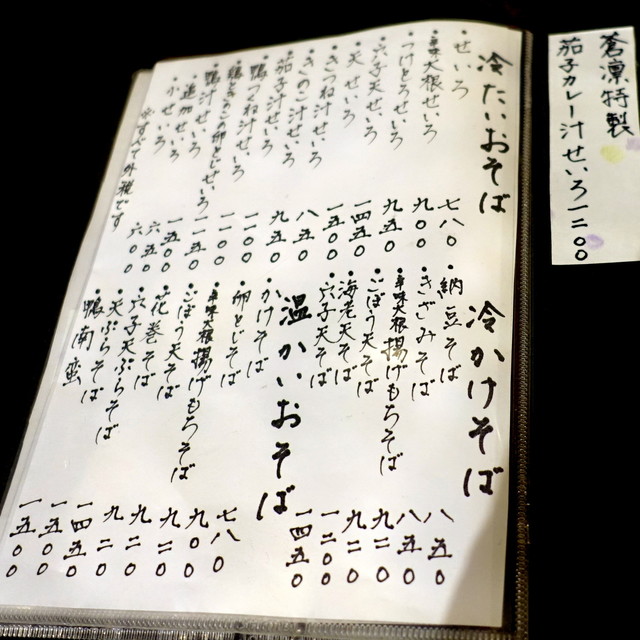 蒼凛特製
茄子カレー汁せいろ一二〇〇
冷たいおそば
・せいろ 七八〇
・辛味大根せいろ 九〇〇
・つけとろせいろ 九五〇
・六子天せいろ 一四五〇
・天せいろ 一五〇〇
・きつね汁せいろ 八五〇
・きのこ汁せいろ 九五〇
・茄子汁せいろ 一一〇〇
・鴨つくね汁せいろ 一一〇〇
・鶏ときのこ卵とじせいろ 一一五〇
・鴨汁せいろ 一五〇〇
・追加せいろ 六五〇
・小せいろ 六〇〇
※すべて外税です
冷かけそば
・納豆そば 八五〇
・きざみそば 八五〇
・辛味大根揚げもちそば 九二〇
・ごぼう天そば 九二〇
・海老天そば 一二〇〇
・六子天そば 一四五〇
温かいおそば
・かけそば 七八〇
・卵とじそば 九〇〇
・辛味大根揚げもちそば 九二〇
・ごぼう天そば 九二〇
・花巻そば 九二〇
・六子天ぷらそば 一四五〇
・天ぷらそば 一五〇〇
・鴨南蛮 一五〇〇